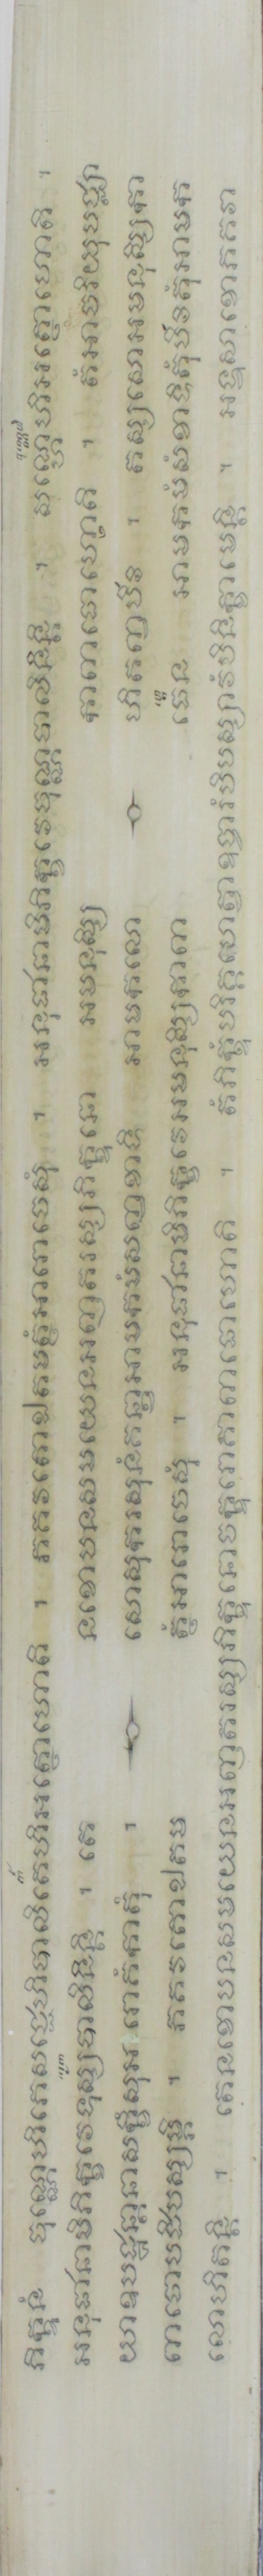 ភិក្ខូនំ ចុណ្ណេហិភេសជ្ជេហិចាលិតេហិអត្ថោហោតិ ។ ភគវតោឯតមត្ថំអារោចេសុំ ។ អនុជានាមិភិក្ខវេចុណ្ណចាលិនិន្តិ ។ សណ្ហេហិអត្ថោហោតិ ។
អនុជានាមិភិក្ខវេទុស្សចាលិនិន្តិ ។ តេ នខោបនសមយេនអញតរស្សភិក្ខុនោ អមនុស្សិ កាពាធោហោតិ ។ តំអាចរិយុបជ្ឈា
យាឧបដ្ឋហន្តានាសក្ខឹសុអ រោគំកាតុំ ។ សោសុករសុនំគន្ត្វាអាមកមំសញខាទិ អាមកលោ ហិតញបិវ ។ តស្សសោអមនុស្សិកា
ពាធោបដិបស្សម្ភិ ។ ភគវតោឯតម ត្ថំអារោចេសុំ ។ អនុជានាមិភិក្ខវេអមនុស្សិកាពា ធេន អាមកមំសំខាទិតុំបិវតុំអាមក
លោហិតន្តិ ។ តេនខោបនសមយេនអញតរស្សភិក្ខុនោចក្ខុរោគាពាធោហោតិ ។ តំភិក្ខុំបរិគ្គហេត្វាឧច្ចារំបិបស្សាវំបិនិក្ខាមេន្តិ ។ អទ្ទសាខោភគវា